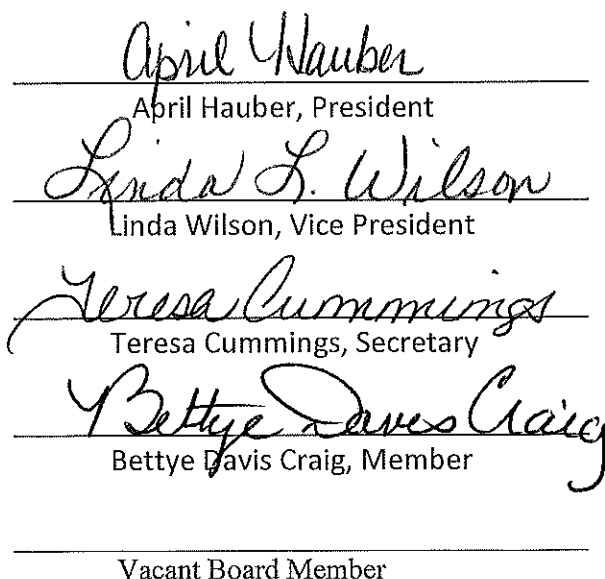 April Hauber
April Hauber, President
Linda L. Wilson
Linda Wilson, Vice President
Teresa Cummings
Teresa Cummings, Secretary
Bettye Davis Craig
Bettye Davis Craig, Member
Vacant Board Member